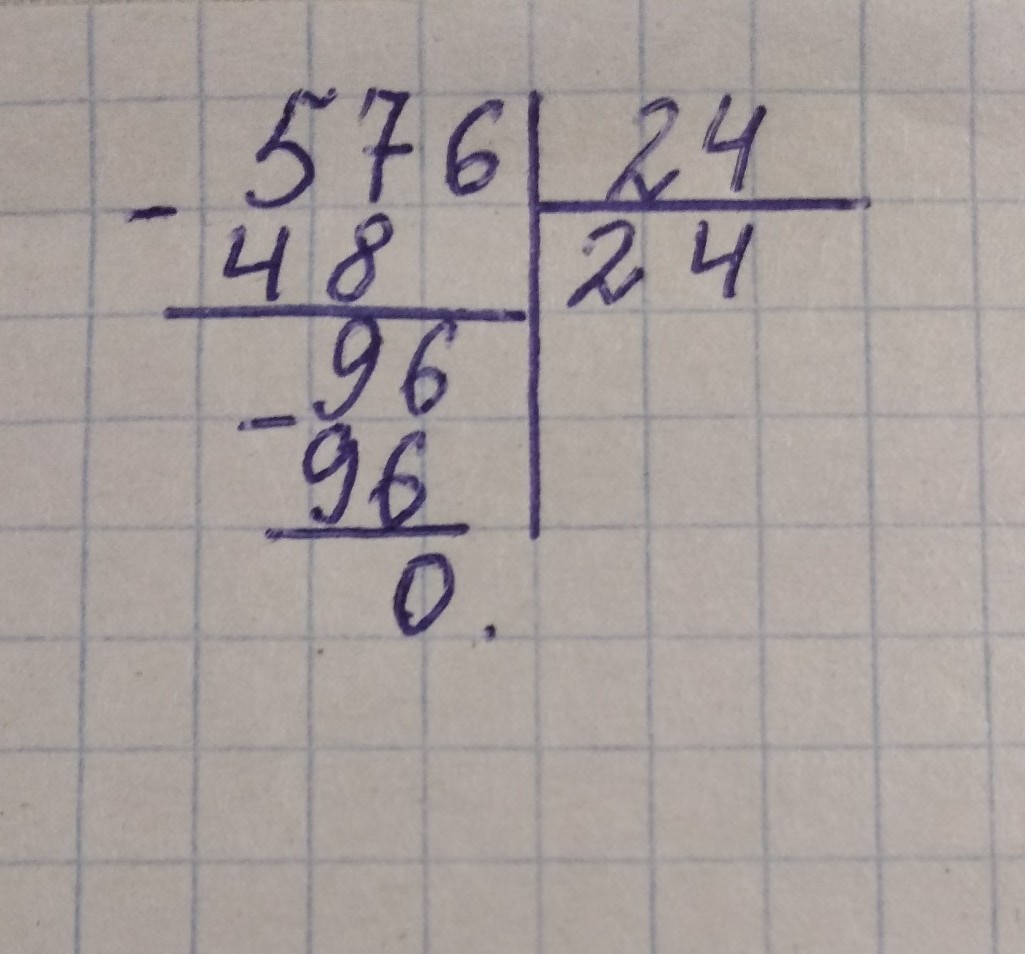 576 24
- 48 24
96
- 96
0.